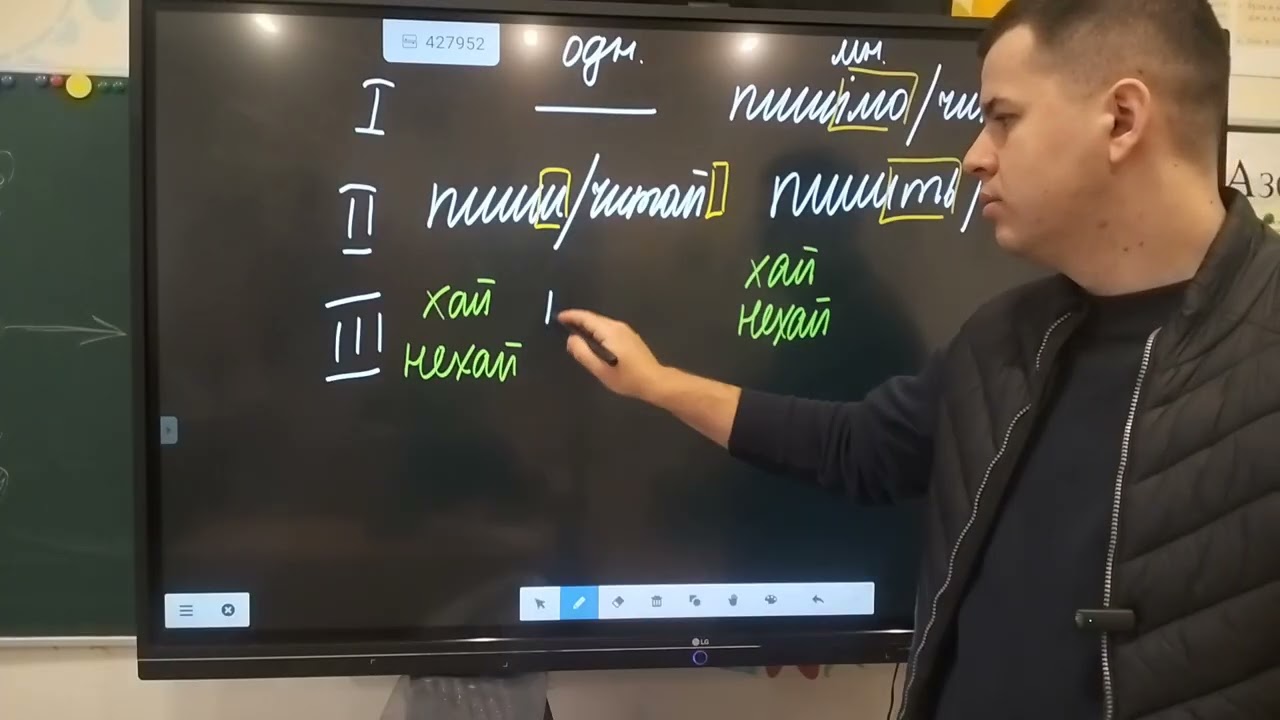 427952
одн. мн.
I пишімо/чи
II пиши/читай пишіть/
III хай хай
нехай нехай
LG
Аз